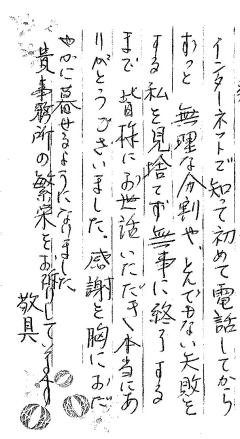 インターネットで知って初めて電話してから
ずっと 無理な分割や、とんでもない失敗を
する私を見捨てず無事に終了する
まで 皆様にお世話いただき本当にあ
りがとうございました。感謝を胸におだ
やかに暮せるようになりました
貴事務所の繁栄をお祈りしてます
敬具